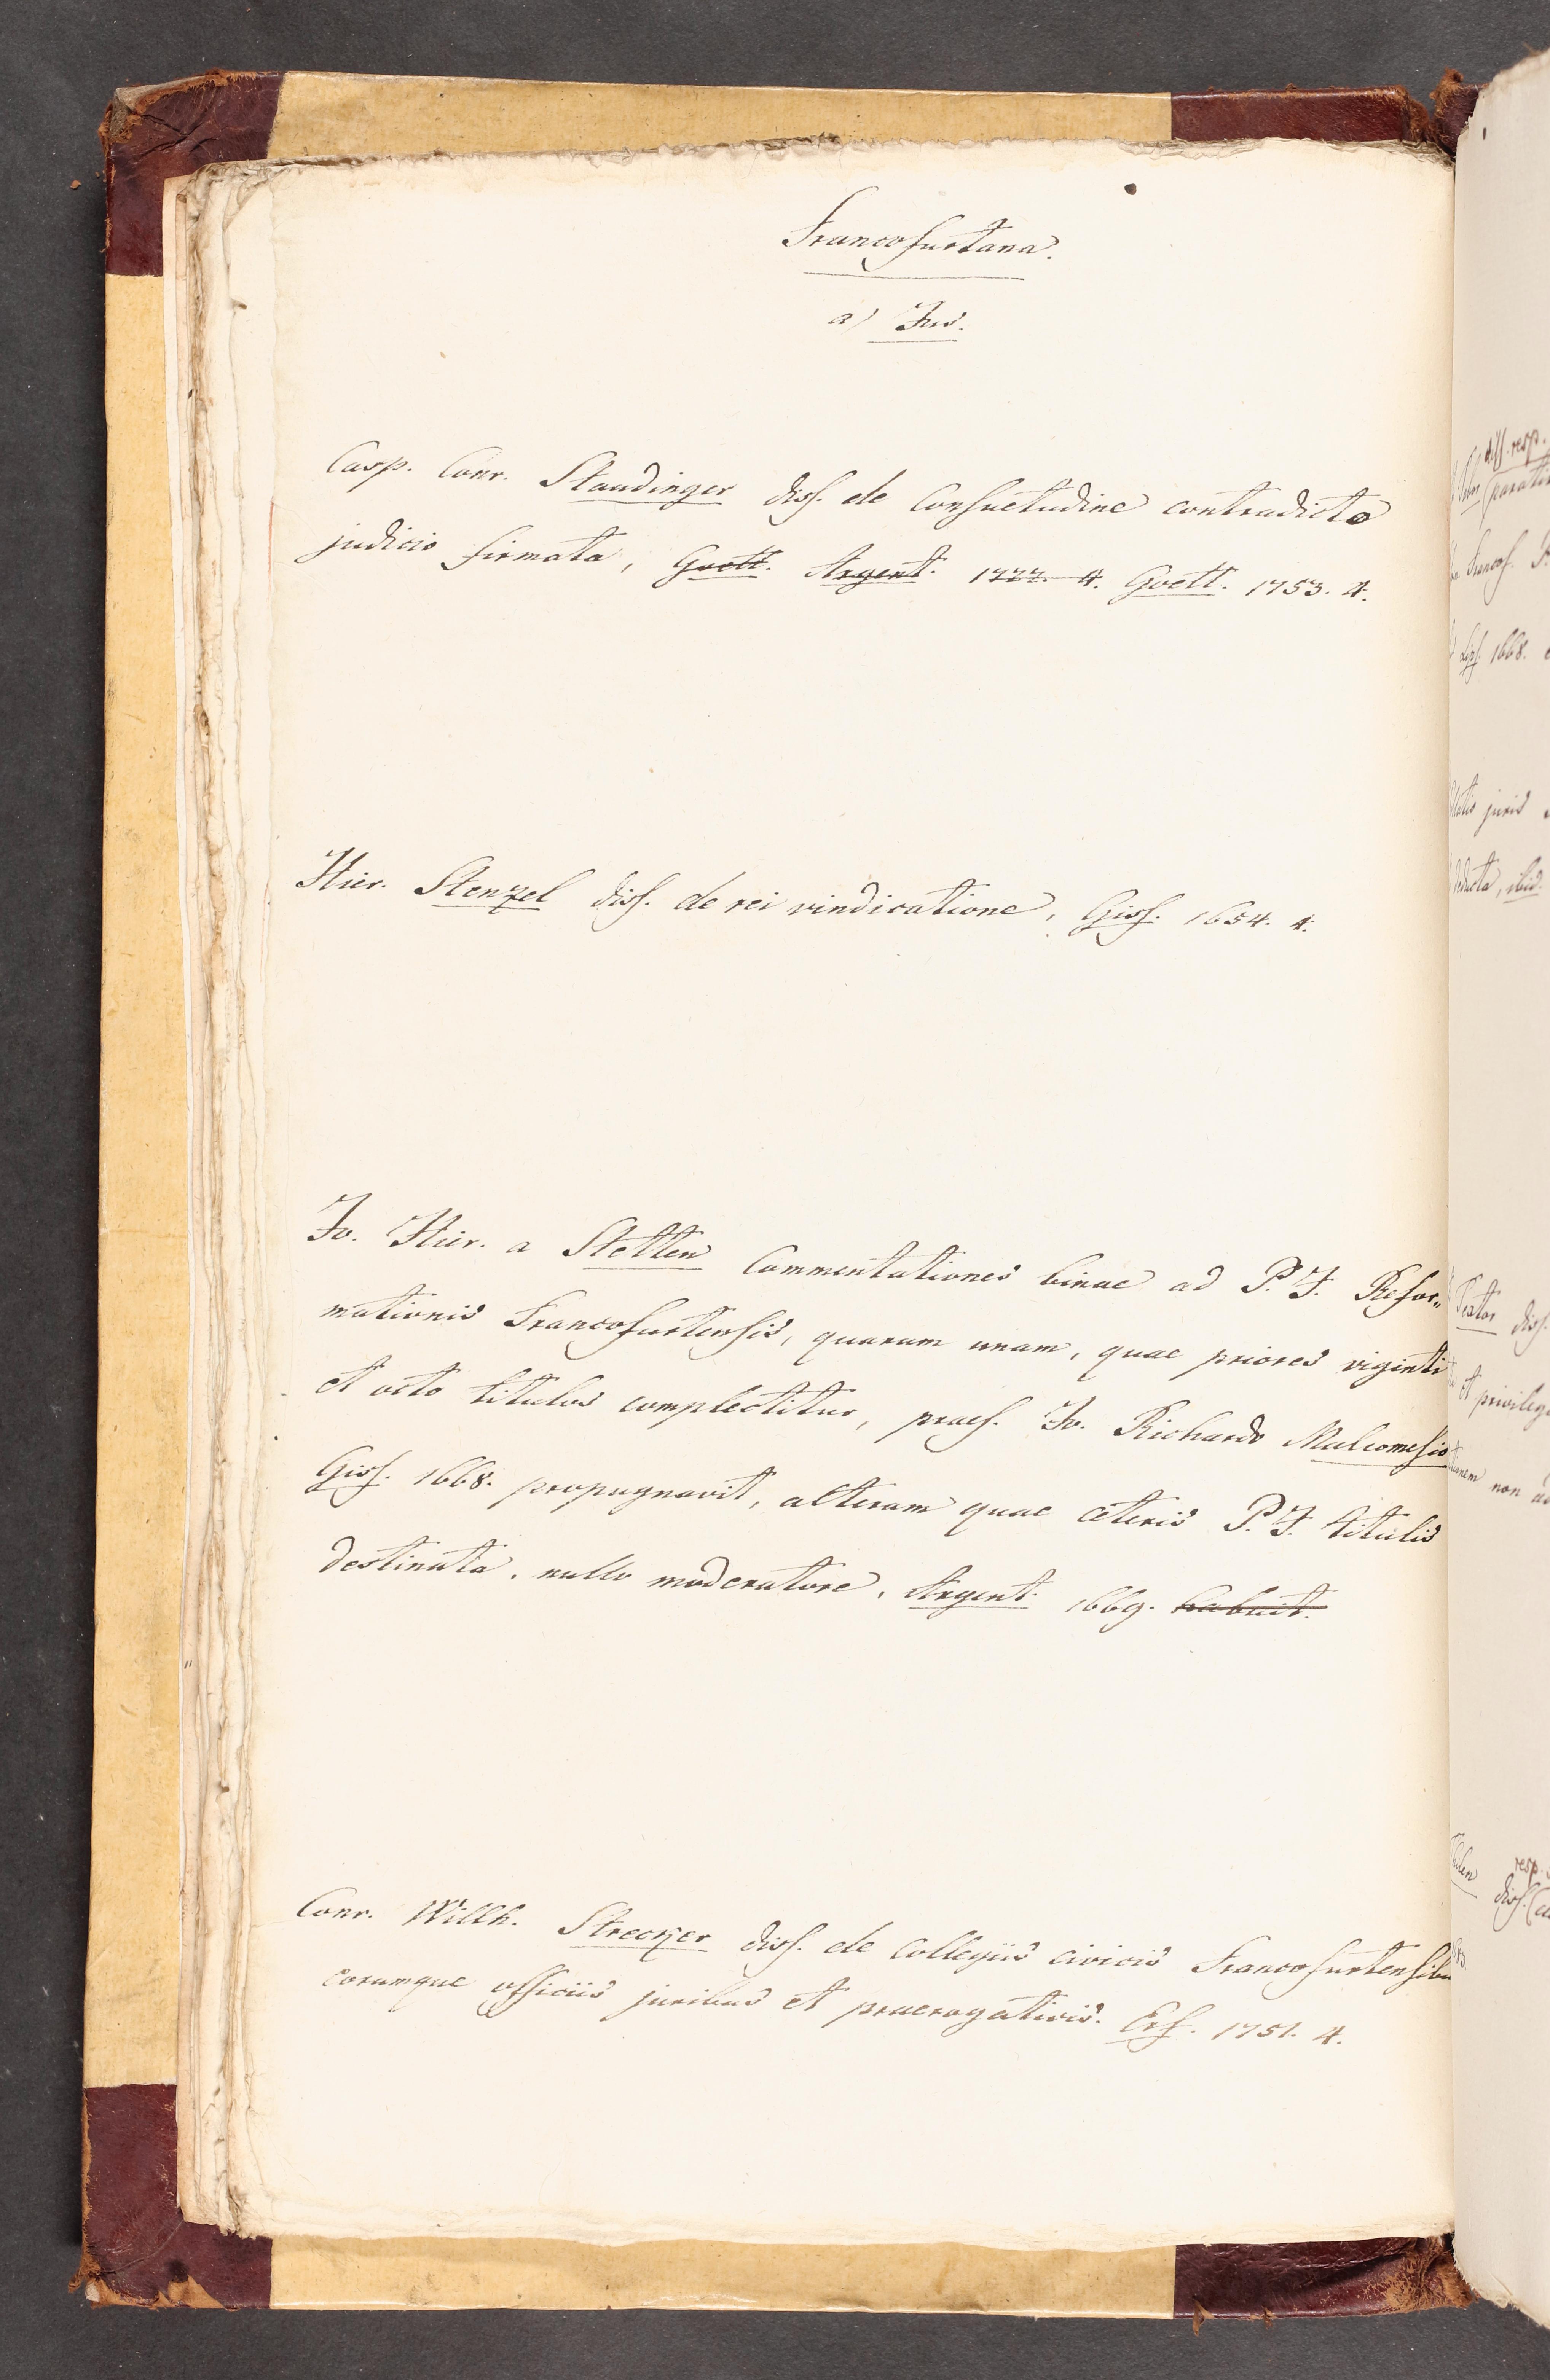 Francofurtana.
a) Jus.
Casp. Conr. Staudinger diss. de consuetudine contradicto
judicio firmata, Goett. Argent. 1777. 4. Goett. 1753. 4.
Hier. Stenzel diss. de rei vindicatione, Giss. 1654. 4.
Jo. Hier. a Stetten Commentationes binae ad P. I. Refor„
mationis Francofurtensis, quarum unam, quae priores viginti
et octo titulos complectitur, praes. Jo. Richardo Malcomesio
Giss. 1668. propugnavit, alteram quae ceteris P. I. titulis
destinata, nullo moderatore, Argent. 1669. habuit.
Conr. Willh. Strecker diss. de collegiis civicis Francofurtensibus
eorumque officiis juribus et praerogativis. Erf. 1751. 4.
diss. resp.
Francof.
Lips. 1668.
juris
ibid.
Textor diss.
et privileg
non
resp.
diss.